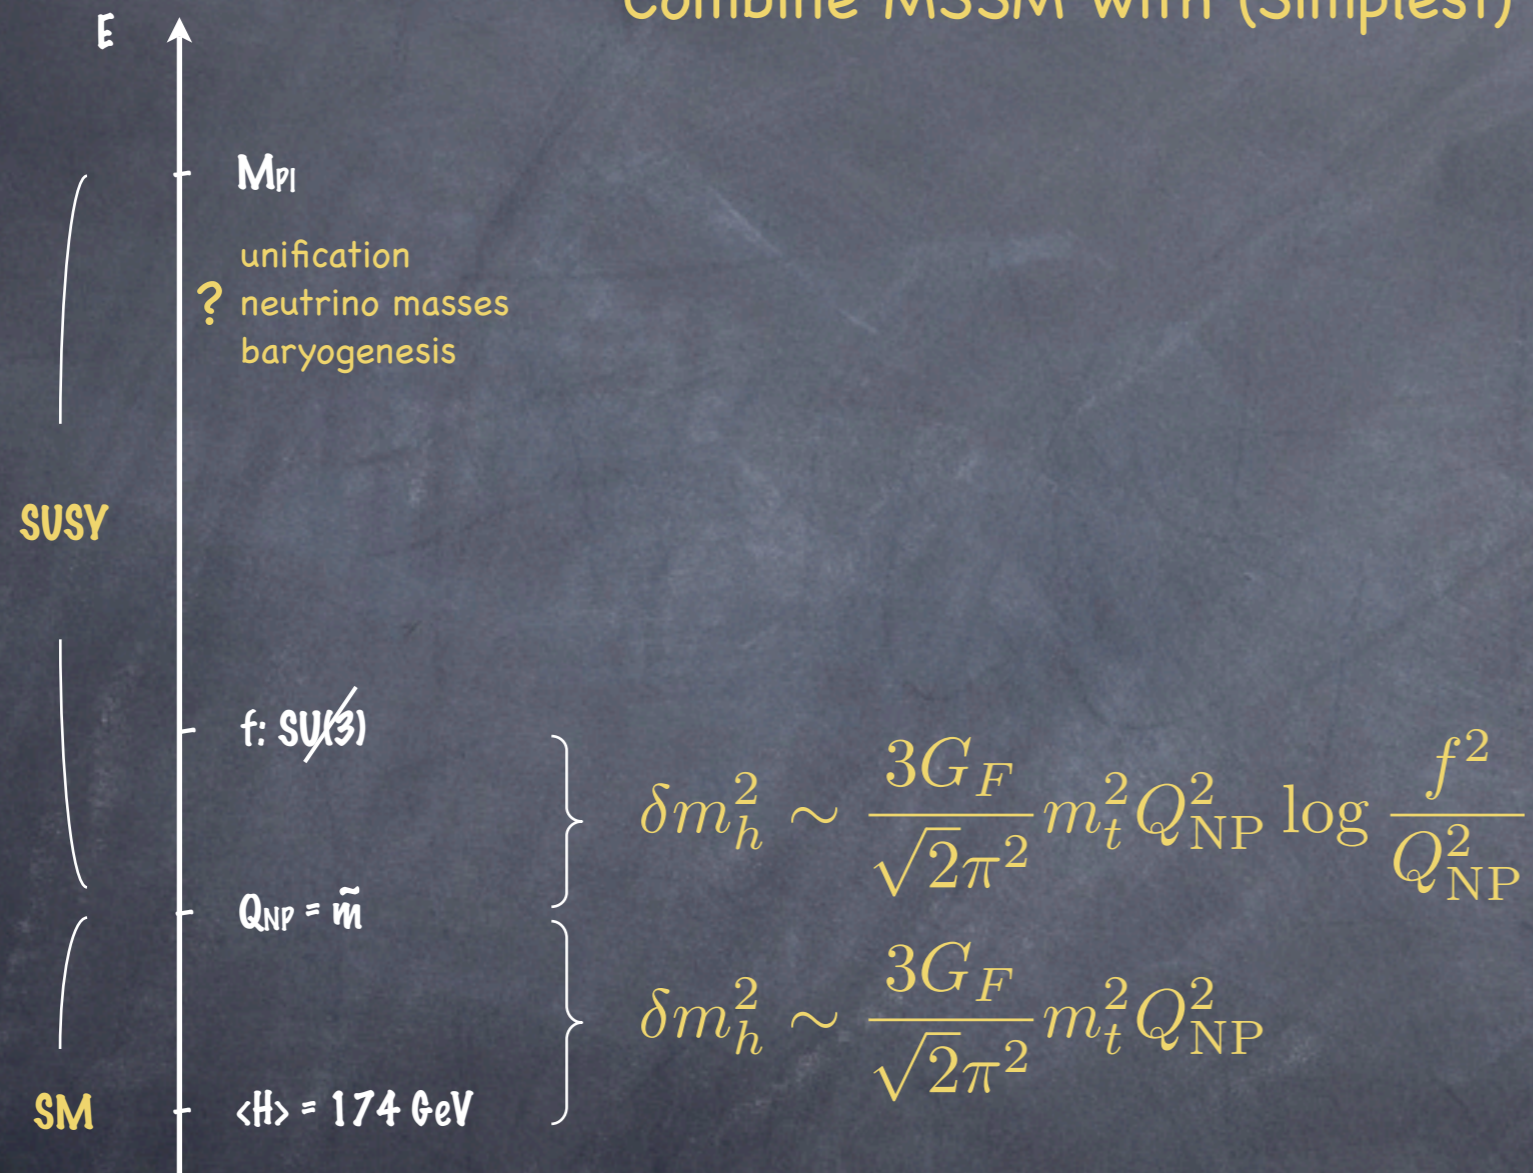 Combine MSSM with (Simplest)
E
M_Pl
unification
? neutrino masses
baryogenesis
SUSY
f: SU(3)
δm_h^2 ∼ \frac{3G_F}{\sqrt{2}π^2} m_t^2 Q_{NP}^2 log \frac{f^2}{Q_{NP}^2}
Q_NP = m̃
δm_h^2 ∼ \frac{3G_F}{\sqrt{2}π^2} m_t^2 Q_{NP}^2
SM
<H> = 174 GeV